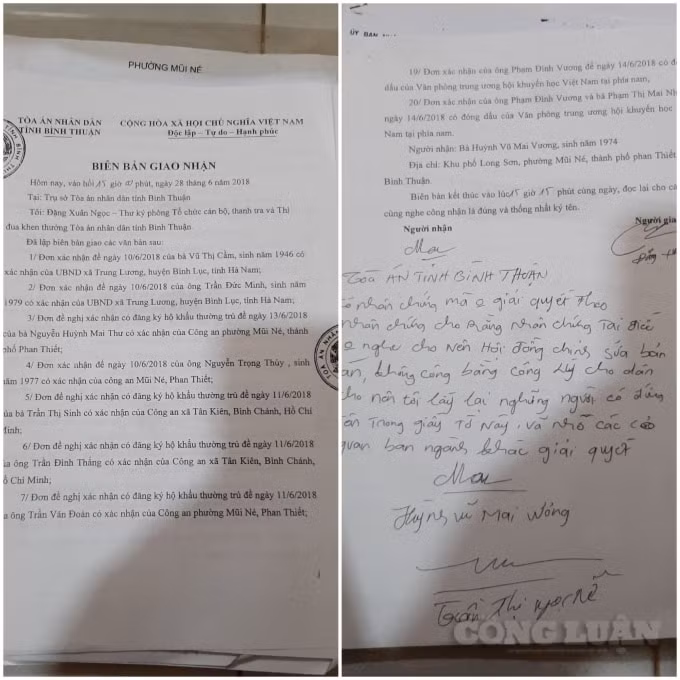 PHƯỜNG MŨI NÉ
TÒA ÁN NHÂN DÂN
TỈNH BÌNH THUẬN
CỘNG HÒA XÃ HỘI CHỦ NGHĨA VIỆT NAM
Độc lập – Tự do – Hạnh phúc
BIÊN BẢN GIAO NHẬN
Hôm nay, vào hồi 15 giờ phút, ngày 28 tháng 6 năm 2018
Tại: Trụ sở Tòa án nhân dân tỉnh Bình Thuận
Tôi: Đặng Xuân Ngọc – Thư ký phòng Tổ chức cán bộ, thanh tra và Thi
đua khen thưởng Tòa án nhân dân tỉnh Bình Thuận.
Đã lập biên bản giao các văn bản sau:
1/ Đơn xác nhận đề ngày 10/6/2018 của bà Vũ Thị Cầm, sinh năm 1946 có
xác nhận của UBND xã Trung Lương, huyện Bình Lục, tỉnh Hà Nam;
2/ Đơn xác nhận đề ngày 10/6/2018 của ông Trần Đức Minh, sinh năm
1979 có xác nhận của UBND xã Trung Lương, huyện Bình Lục, tỉnh Hà Nam;
3/ Đơn đề nghị xác nhận có đăng ký hộ khẩu thường trú đề ngày 13/6/2018
của bà Nguyễn Huỳnh Mai Thư có xác nhận của Công an phường Mũi Né, thành
phố Phan Thiết;
4/ Đơn xác nhận đề ngày 10/6/2018 của ông Nguyễn Trọng Thủy , sinh
năm 1977 có xác nhận của công an Mũi Né, Phan Thiết;
5/ Đơn đề nghị xác nhận có đăng ký hộ khẩu thường trú đề ngày 11/6/2018
của bà Trần Thị Sinh có xác nhận của Công an xã Tân Kiên, Bình Chánh, Hồ Chí
Minh;
6/ Đơn đề nghị xác nhận có đăng ký hộ khẩu thường trú đề ngày 11/6/2018
ủa ông Trần Đình Thắng có xác nhận của Công an xã Tân Kiên, Bình Chánh,
ồ Chí Minh;
7/ Đơn đề nghị xác nhận có đăng ký hộ khẩu thường trú đề ngày 11/6/2018
a ông Trần Văn Đoàn có xác nhận của Công an phường Mũi Né, Phan Thiết;
ỦY BAN
19/ Đơn xác nhận của ông Phạm Đình Vương đề ngày 14/6/2018 có đ
dấu của Văn phòng trung ương hội khuyến học Việt Nam tại phía nam;
20/ Đơn xác nhận của ông Phạm Đình Vương và bà Phạm Thị Mai Nh
ngày 14/6/2018 có đóng dấu của Văn phòng trung ương hội khuyến học
Nam tại phía nam.
Người nhận: Bà Huỳnh Vũ Mai Vương, sinh năm 1974
Địa chỉ: Khu phố Long Sơn, phường Mũi Né, thành phố phan Thiết
Bình Thuận.
Biên bản kết thúc vào lúc 15 giờ 15 phút cùng ngày, đọc lại cho cá
cùng nghe công nhận là đúng và thống nhất ký tên.
Người nhận
Người gia
Toà ÁN TỈNH BÌNH THUẬN
nhân chứng mà giải quyết Theo
nhân chứng cho Rằng nhân chứng Tai điếc
nghe cho nên Hội đồng chỉnh sửa bản
án, không công bằng công lý cho dân
cho nên tôi lấy lại những người có đứng
ân Trong giấy Tờ Này, và nhờ các
quan ban ngành khác giải quyết
Huỳnh vũ Mai
Trần Thị Ngọc Nễ
CÔNG LUẬN